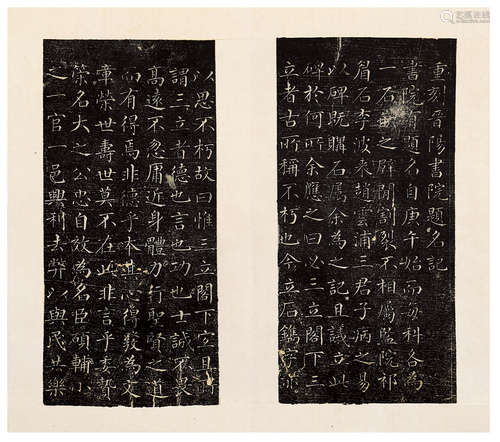 重刻晉陽書院題名記
書院有題名自庚午始而每科各為
一石之辟間割裂不相屬監院祁
眉石李波来趙雲浦三君子病之易
以碑既購石属余為之記且議立此
碑於何所余應之曰必三立閣下三
立者古所稱不朽也今立石鐫
以思不朽故曰惟三立閣下宜且
謂三立者德也言也功也士誠不畏
高遠不忽庸近身體力行聖賢之道
而有得焉非德乎本其心得發為文
章榮世壽世莫不在此非言乎委贄
策名大之公忠自效為名臣碩輔小
之一官一邑興利去弊以與民共樂